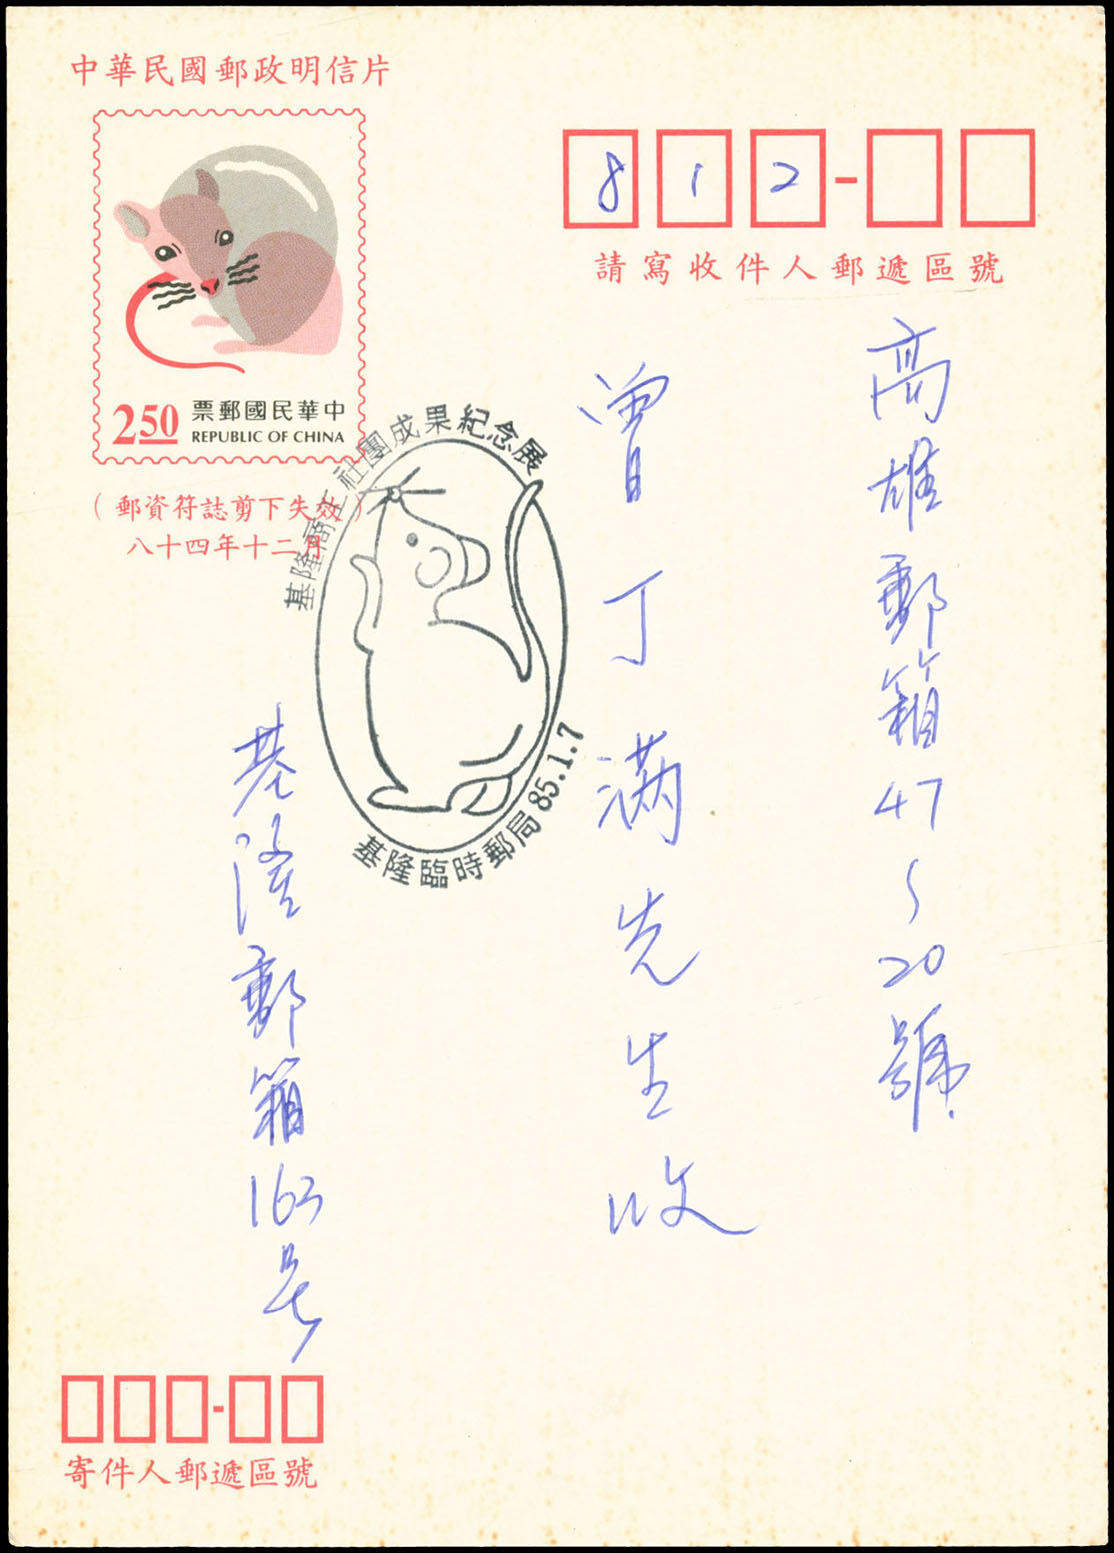 中華民國郵政明信片
2.50 票郵國民華中
REPUBLIC OF CHINA
(郵資符誌剪下失效)
八十四年十二月
812-
請寫收件人郵遞區號
基隆商工社團成果紀念展
基隆臨時郵局 85.1.7
高雄郵箱47~20號
曾丁滿先生收
基隆郵箱163号
寄件人郵遞區號